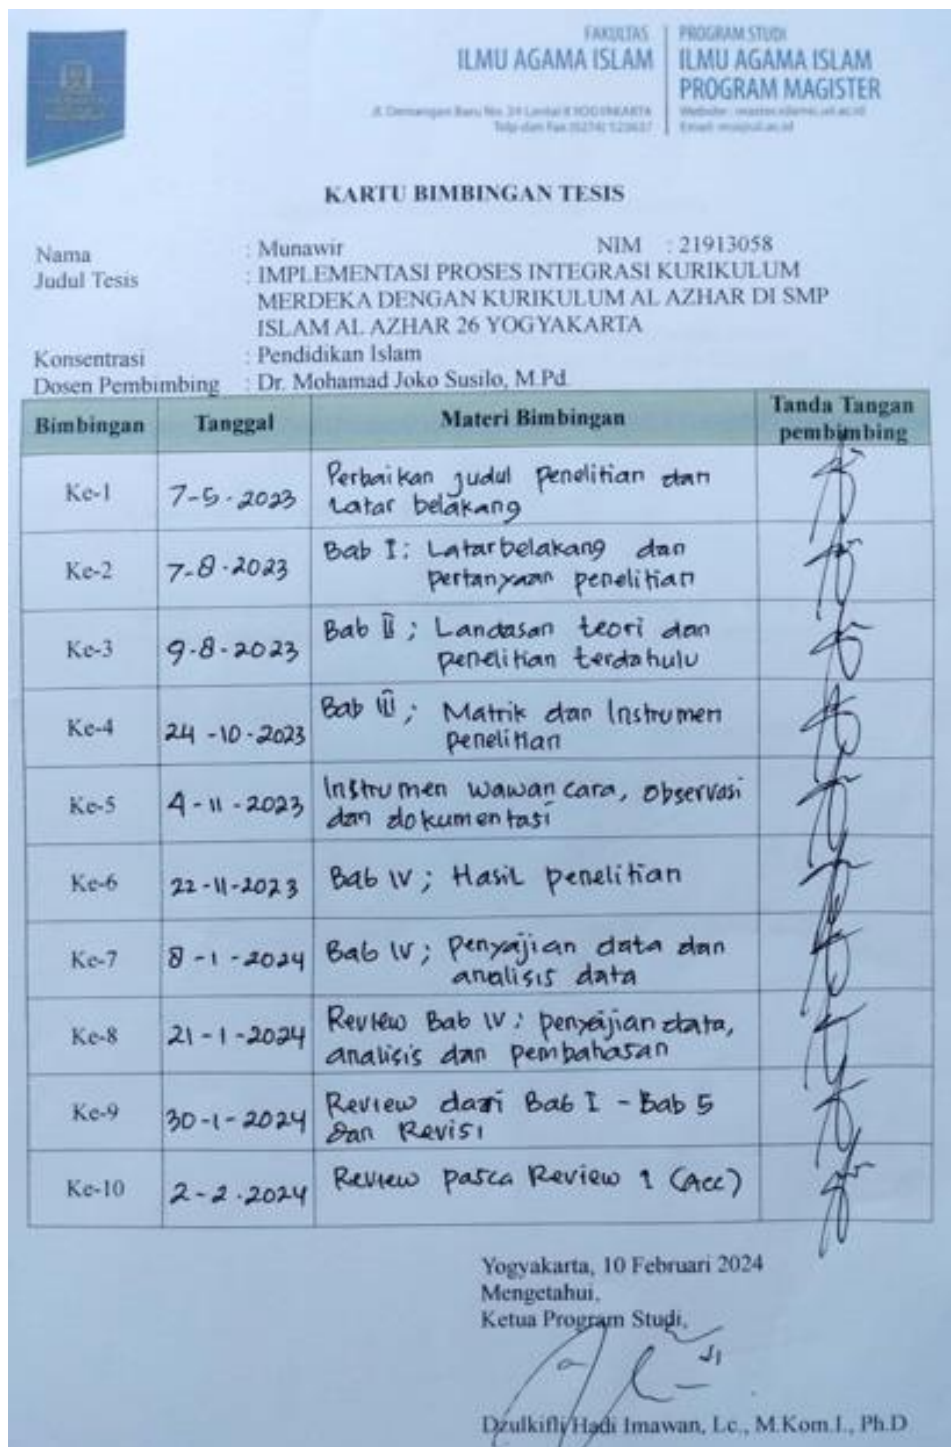 FAKULTAS
ILMU AGAMA ISLAM
PROGRAM STUDI
ILMU AGAMA ISLAM
PROGRAM MAGISTER
KARTU BIMBINGAN TESIS
Nama : Munawir NIM : 21913058
Judul Tesis : IMPLEMENTASI PROSES INTEGRASI KURIKULUM
MERDEKA DENGAN KURIKULUM AL AZHAR DI SMP
ISLAM AL AZHAR 26 YOGYAKARTA
Konsentrasi : Pendidikan Islam
Dosen Pembimbing : Dr. Mohamad Joko Susilo, M.Pd.
Bimbingan Tanggal Materi Bimbingan Tanda Tangan
pembimbing
Ke-1 7-5-2023 Perbaikan judul penelitian dan
Latar belakang
Ke-2 7-8-2023 Bab I: Latarbelakang dan
pertanyaan penelitian
Ke-3 9-8-2023 Bab II; Landasan teori dan
penelitian terdahulu
Ke-4 24-10-2023 Bab III; Matrik dan Instrumen
penelitian
Ke-5 4-11-2023 Instrumen wawancara, observasi
dan dokumentasi
Ke-6 22-11-2023 Bab IV; Hasil penelitian
Ke-7 8-1-2024 Bab IV; penyajian data dan
analisis data
Ke-8 21-1-2024 Review Bab IV: penyajian data,
analisis dan pembahasan
Ke-9 30-1-2024 Review dari Bab I - Bab 5
dan Revisi
Ke-10 2-2-2024 Review pasca Review 1 (Acc)
Yogyakarta, 10 Februari 2024
Mengetahui,
Ketua Program Studi,
Dzulkifli Hadi Imawan, Lc., M.Kom.I., Ph.D